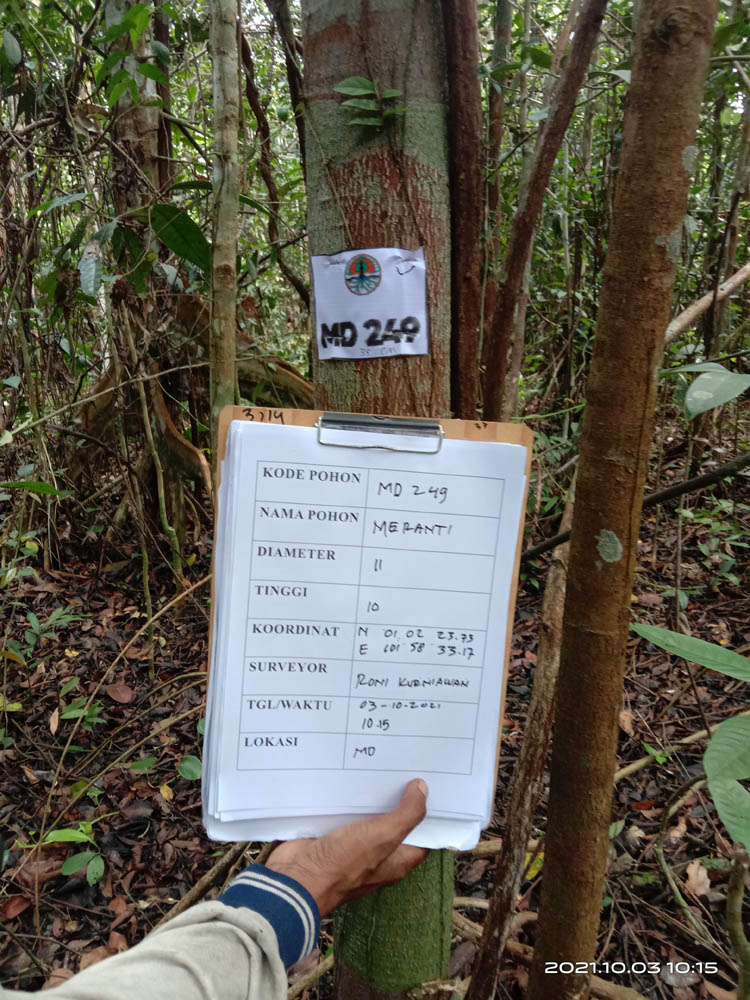 MD 249
35 cm
KODE POHON MD 249
NAMA POHON MERANTI
DIAMETER 11
TINGGI 10
KOORDINAT N 01 02 23.73
E 101 58 33.17
SURVEYOR RONI KURNIAWAN
TGL/WAKTU 03-10-2021
10.15
LOKASI MD
2021.10.03 10:15